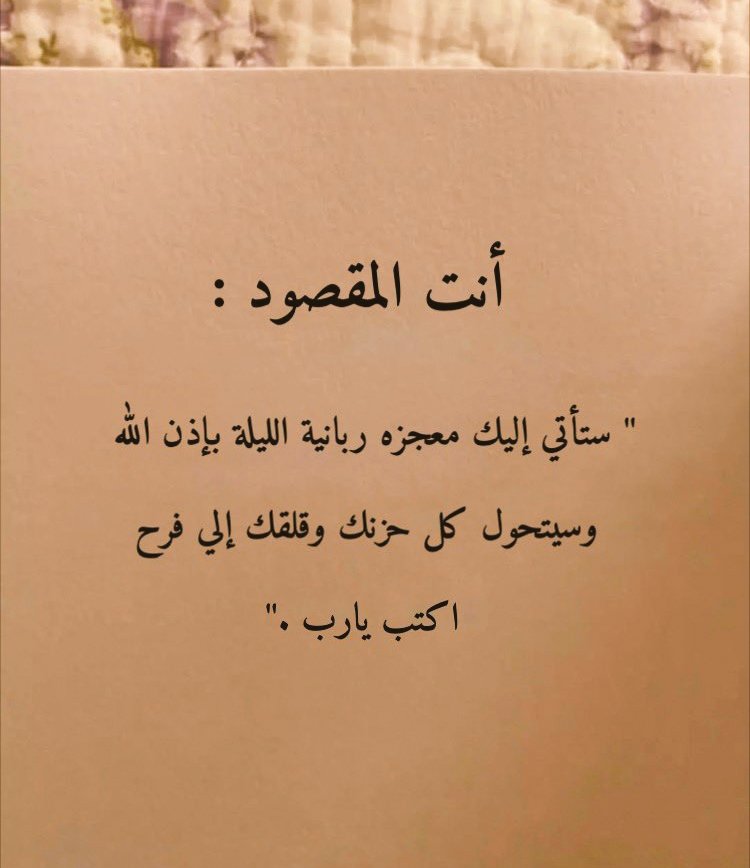 أنت المقصود :
" ستأتي إليك معجزه ربانية الليلة بإذن الله
وسيتحول كل حزنك وقلقك إلي فرح
اكتب يارب ."